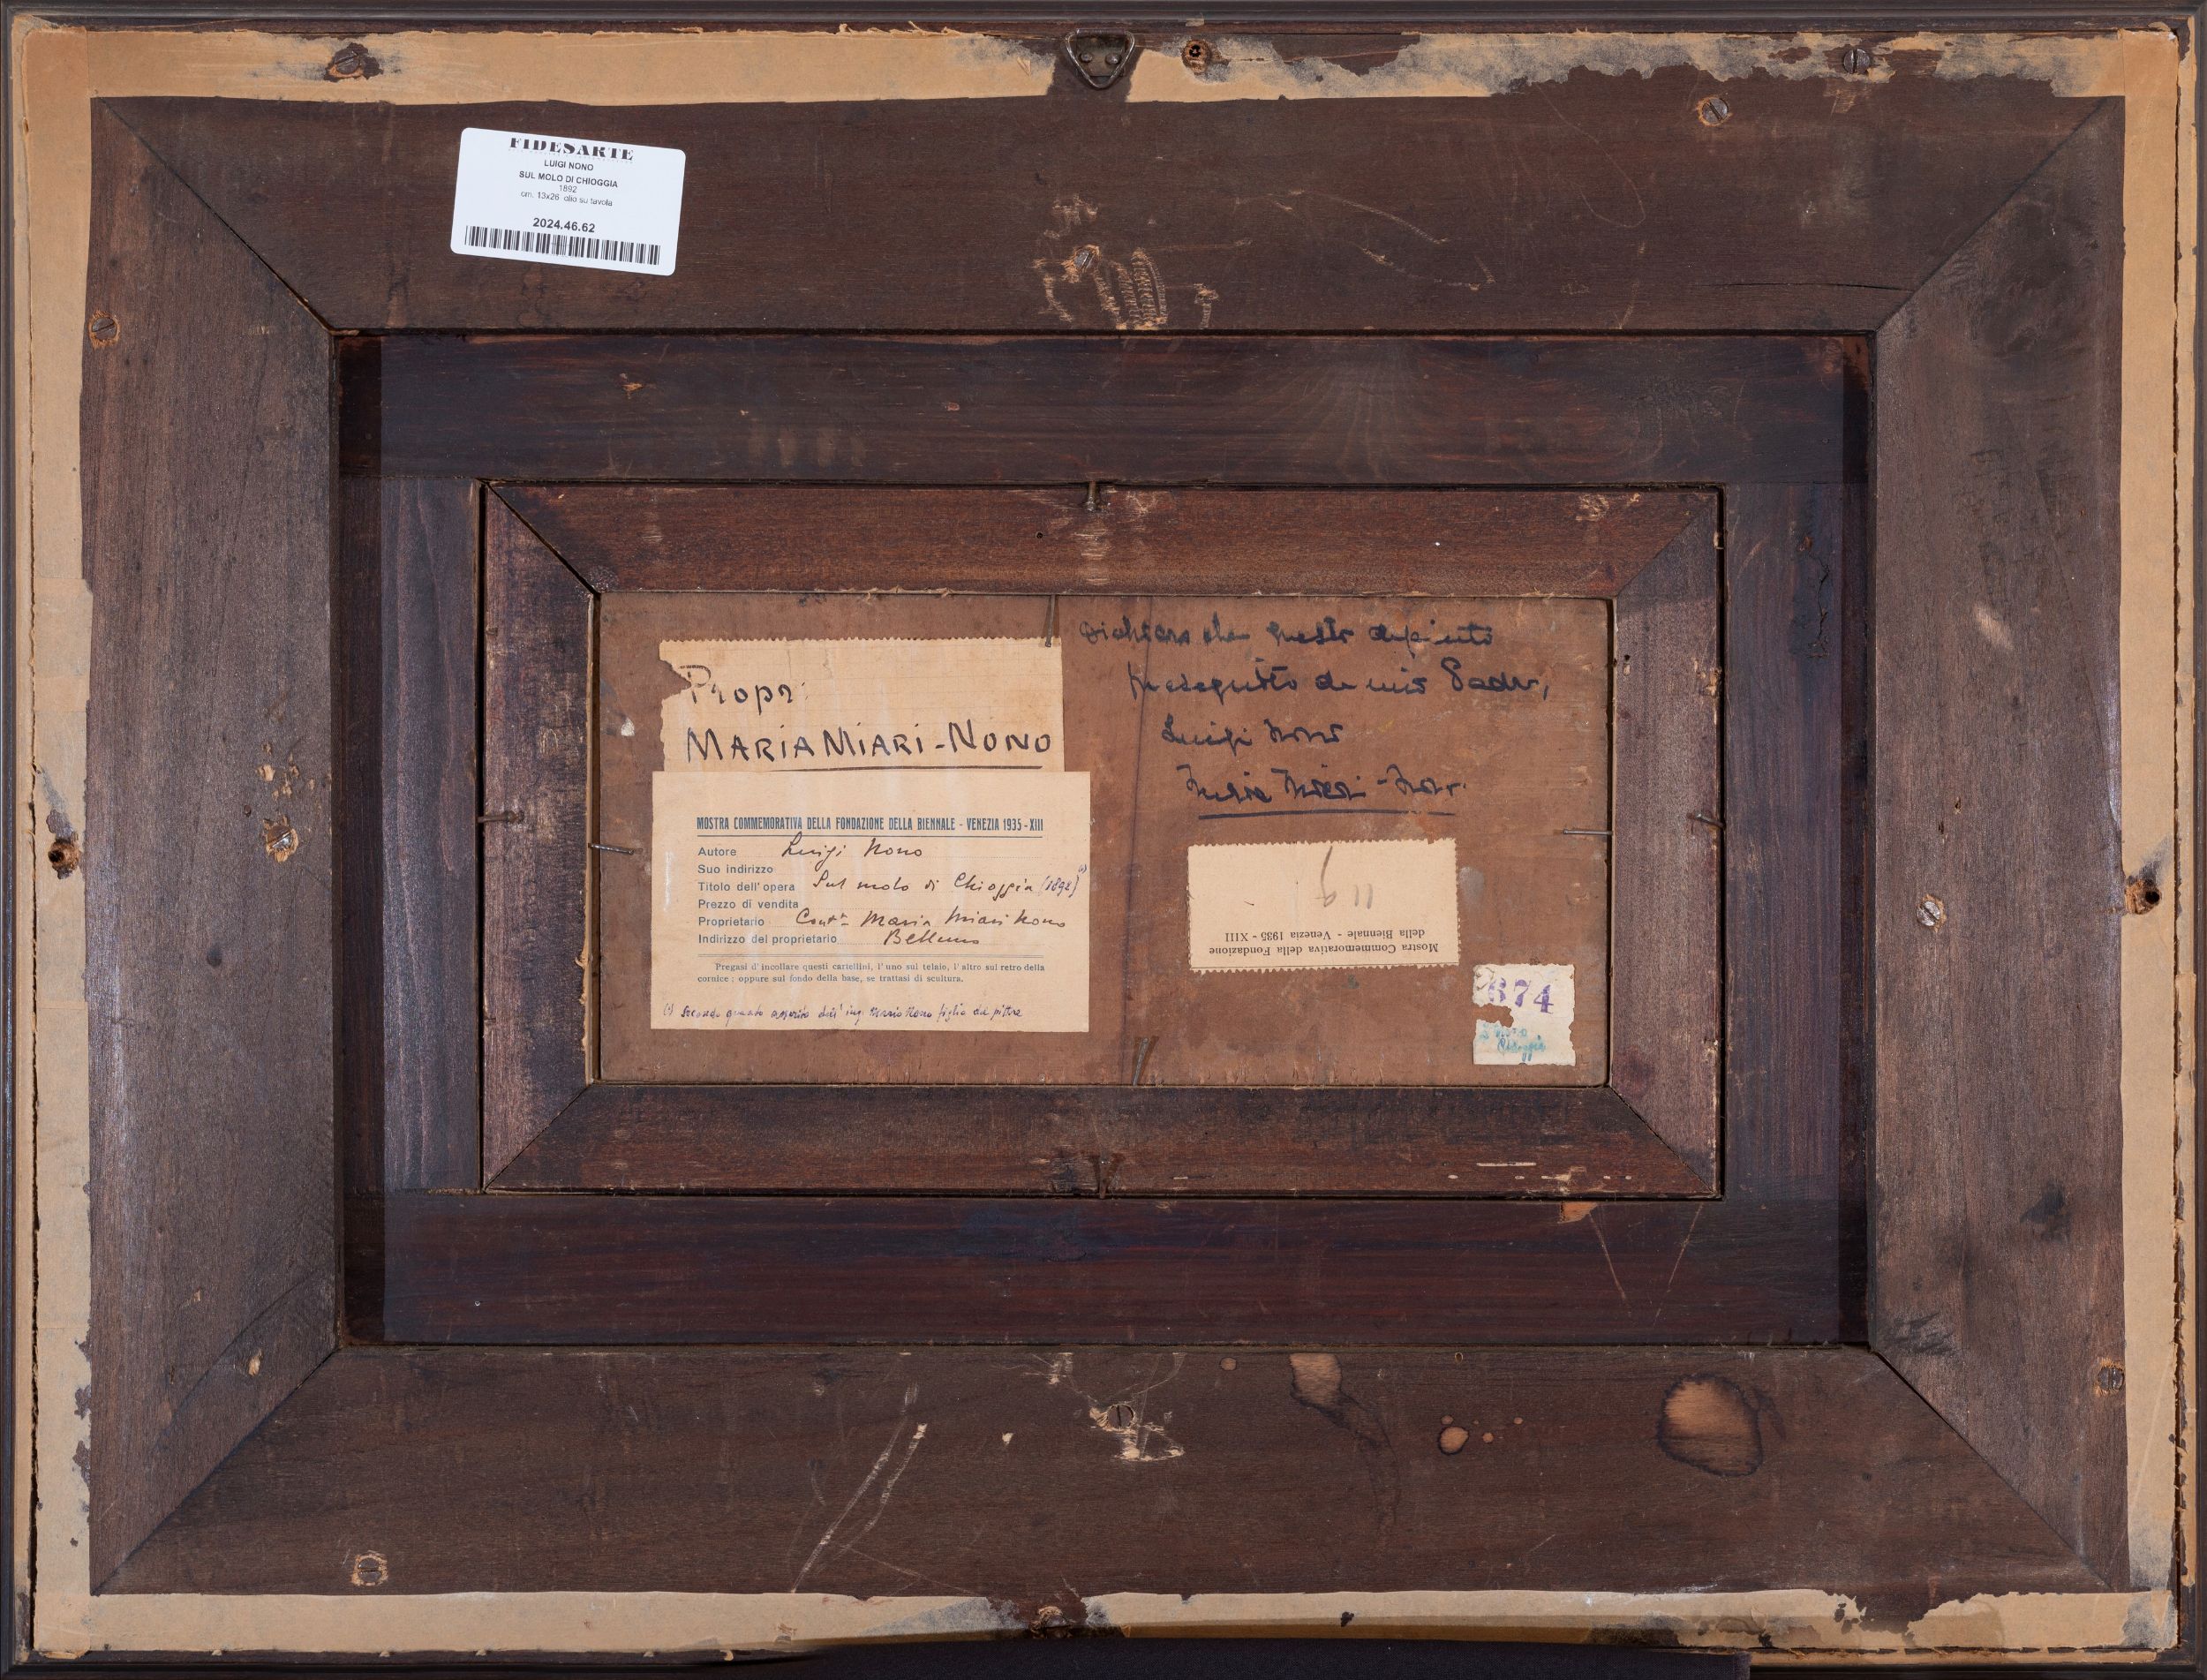 FIDESARTE
LUIGI NONO
SUL MOLO DI CHIOGGIA
1892
cm. 13x26 olio su tavola
2024.46.62
Propr:
MARIA MIARI-NONO
MOSTRA COMMEMORATIVA DELLA FONDAZIONE DELLA BIENNALE - VENEZIA 1935 - XIII
Autore Luigi Nono
Suo indirizzo
Titolo dell'opera Sul molo di Chioggia (1892) (1)
Prezzo di vendita
Proprietario Contª Maria Miari Nono
Indirizzo del proprietario Belluno
Pregasi d'incollare questi cartellini, l'uno sul telaio, l'altro sul retro della
cornice ; oppure sul fondo della base, se trattasi di scultura.
(1) Secondo quanto asserito dall'ing. Mario Nono figlio del pittore
Dichiaro che questo dipinto
fu eseguito da mio Padre,
Luigi Nono
Maria Miari-Nono
Mostra Commemorativa della Fondazione
della Biennale - Venezia 1935 - XIII
674
Nono
Chioggia